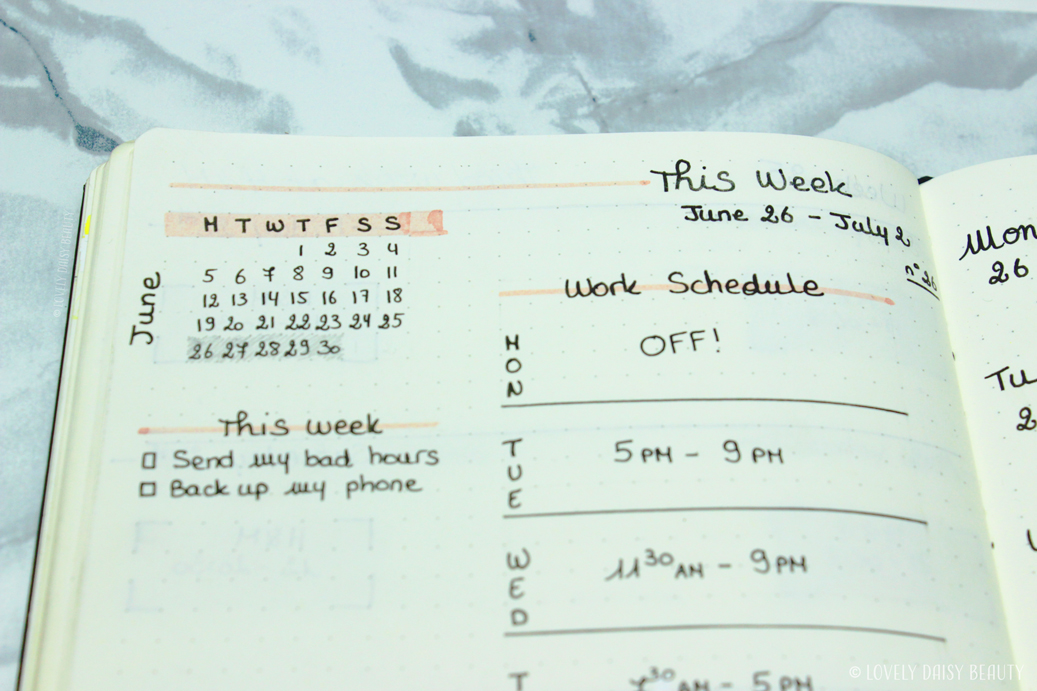 This Week
June 26 - July 2
n° 26
June
M T W T F S S
1 2 3 4
5 6 7 8 9 10 11
12 13 14 15 16 17 18
19 20 21 22 23 24 25
26 27 28 29 30
This week
Send my bad hours
Back up my phone
Work Schedule
MON
OFF!
TUE
5 PM - 9 PM
WED
11 30 AM - 9 PM
T
7 30 AM - 5 PM
Mon
26
Tu
2
© LOVELY DAISY BEAUTY